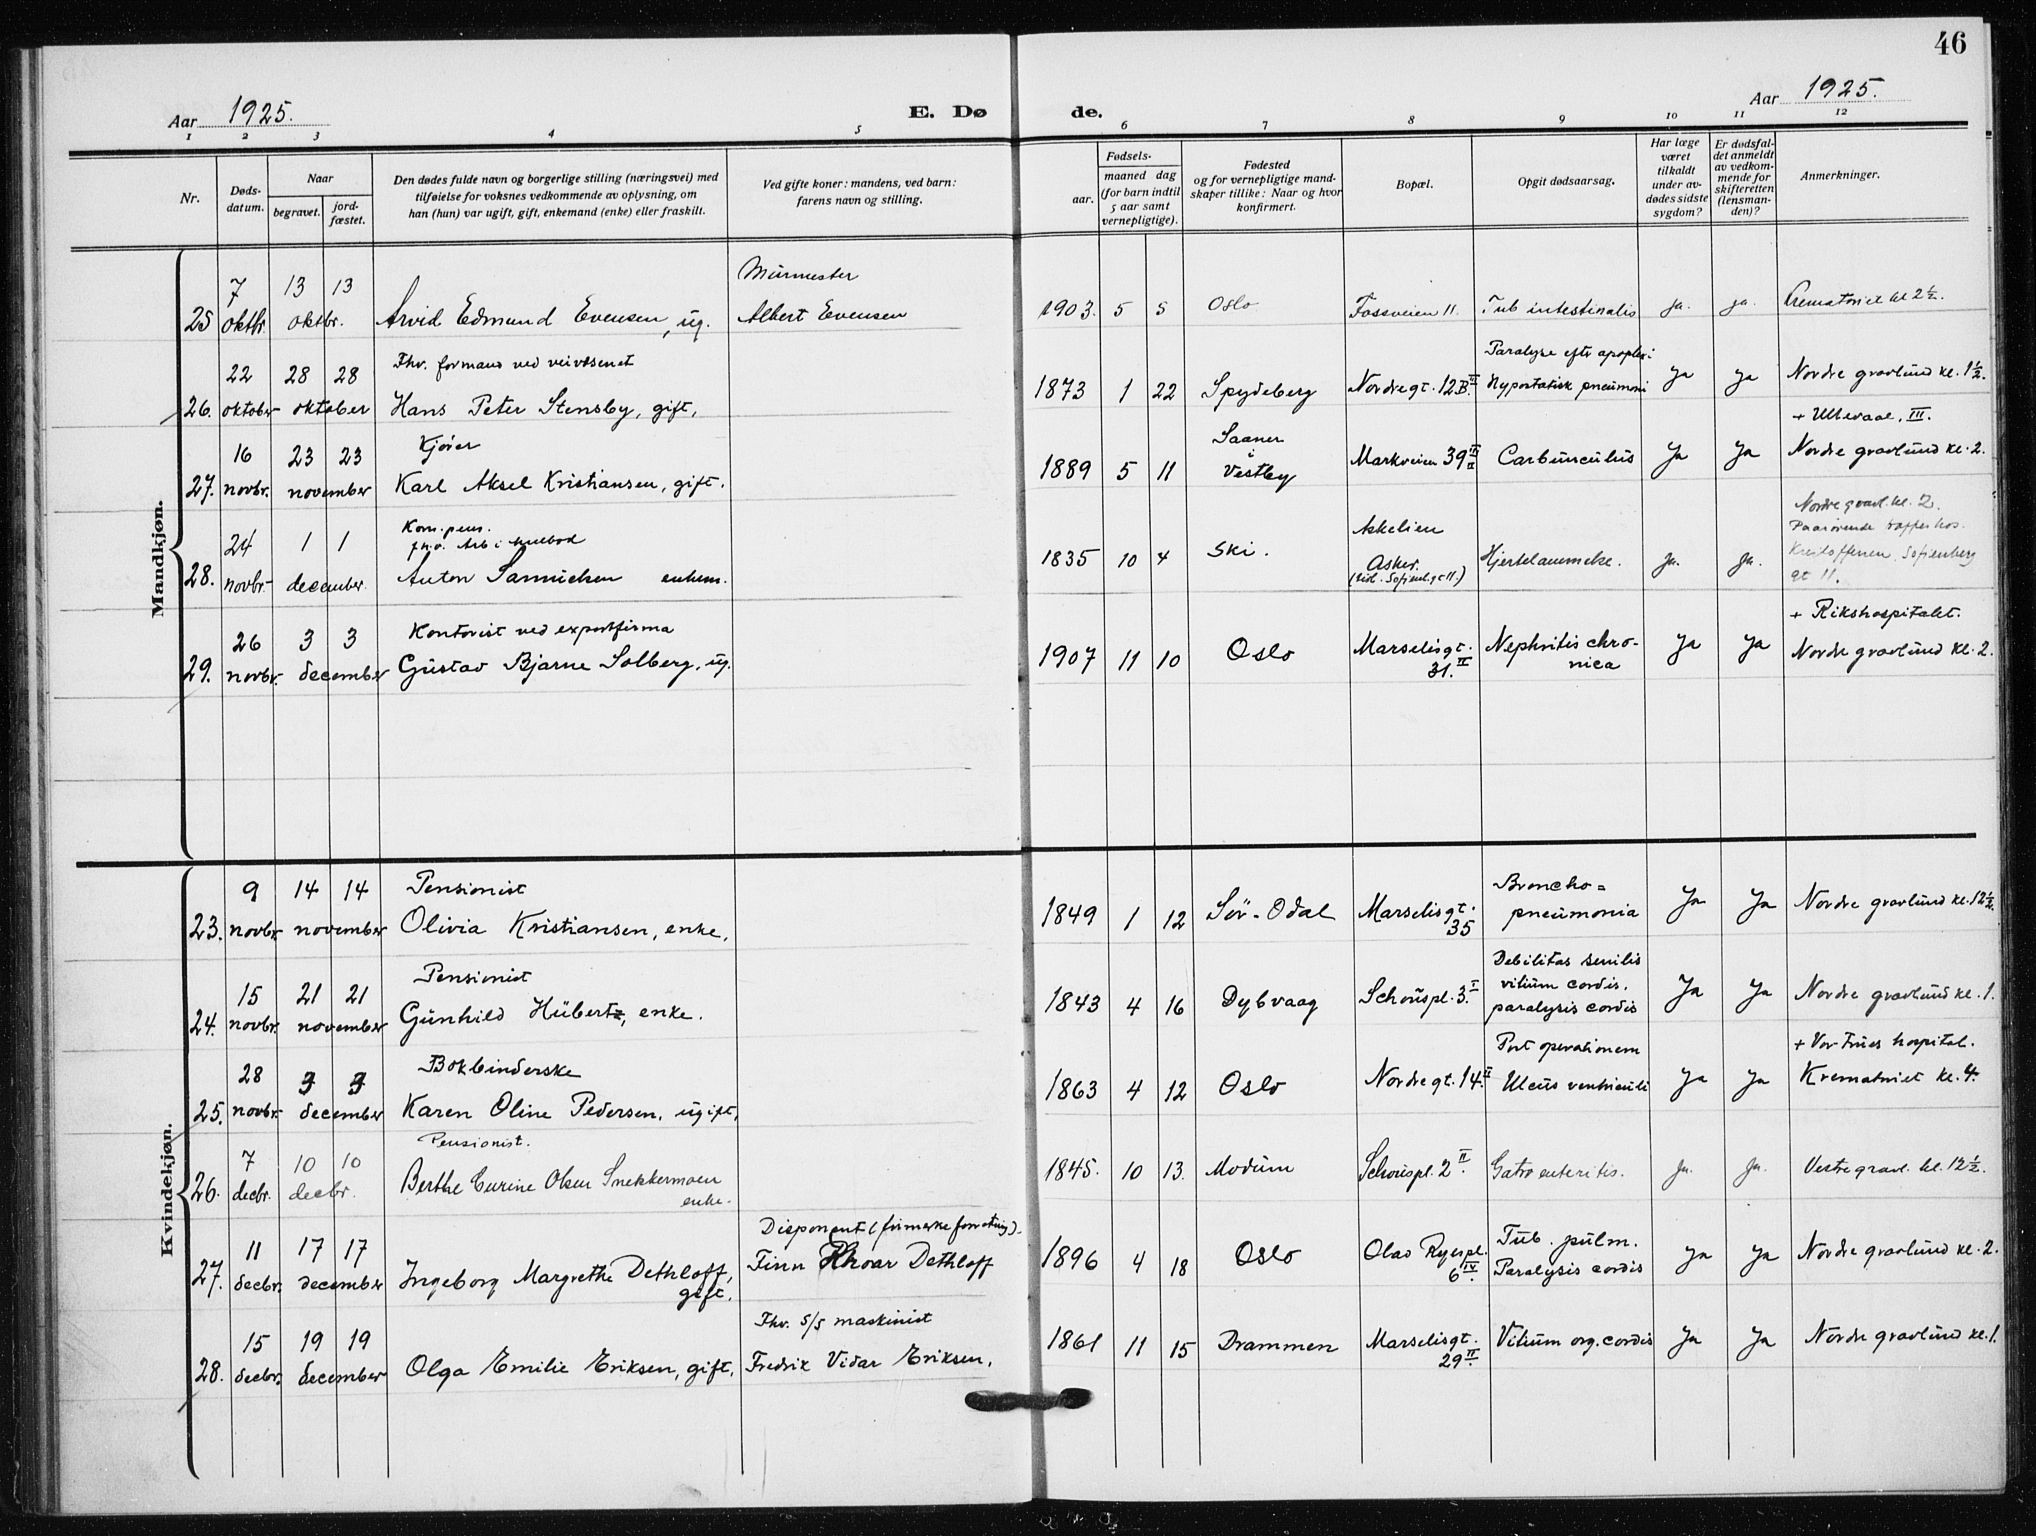 46
Aar 1925.
E. Dø de.
Aar 1925.
1 2 3 4 5 6 7 8 9 10 11 12
Nr.
Døds-
datum.
Naar
begravet.
jord-
fæstet.
Den dødes fulde navn og borgerlige stilling (næringsvei) med
tilføielse for voksnes vedkommende av oplysning, om
han (hun) var ugift, gift, enkemand (enke) eller fraskilt.
Ved gifte koner: mandens, ved barn:
farens navn og stilling.
Fødsels-
aar.
maaned dag
(for barn indtil
5 aar samt
vernepligtige).
Fødested
og for vernepligtige mand-
skaper tillike: Naar og hvor
konfirmert.
Bopæl.
Opgit dødsaarsag.
Har læge
været
tilkaldt
under av-
dødes sidste
sygdom?
Er dødsfal-
det anmeldt
av vedkom-
mende for
skifteretten
(lensman-
den)?
Anmerkninger.
Mandkjøn.
7 13 13 Murmester
25 oktbr. oktbr. Arvid Edmund Evensen, ug. Albert Evensen 1903. 5 5 Oslo Fossveien 11. Tub intestinalis ja. ja. Crematoriet kl 2½.
22 28 28 Fhv. formand ved veivæsenet Paralyse eftr apoplexi
26. oktober oktober Hans Peter Stensby, gift, 1873 1 22 Spydeberg Nordregt. 12B II Hypostatisk pneumoni Ja Ja Nordre gravlund kl. 1½.
16 23 23 Kjører Saaner + Ullevaal, III.
27. novbr. november Karl Aksel Kristiansen, gift. 1889 5 11 i Vestby Markveien 39 Carbunculus Ja Ja Nordre gravlund kl. 2.
24 1 1 Kom. pens. Askelien Nordre gravl. kl. 2.
28. novbr. december. Anton Samuelsen enkem. 1835 10 4 Ski. Asker. Hjertelammelse. ja. ja.
Sofienberg
gt 11.
26 3 3 Kontorist ved exportfirma + Rikshospitalet.
29. novbr. december Gustav Bjarne Solberg, ug. 1907 11 10 Oslo Marselisgt. 31. II Nephritis chro-
nica Ja Ja Nordre gravlund kl. 2.
Kvindekjøn.
9 14 14 Pensionist Broncho=
23. novbr. november Olivia Kristiansen, enke, 1849 1 12 Sør-Odal Marselisgt. 35 pneumonia Ja Ja Nordre gravlund kl. 12½.
15 21 21 Pensionist Debilitas senilis
vitium cordis,
24. novbr. november Gunhild Hübertz, enke. 1843 4 16 Dybvaag Schouspl. 3. I paralysis cordis Ja Ja Nordre gravlund kl. 1.
28 3 3 Bokbinderske Post operationem + Vor Frues hospital.
25. novbr. december Karen Oline Pedersen, ugift, 1863 4 12 Oslo Nordregt. 14. II Ulcus ventriculi Ja Ja Krematoriet kl. 4.
7 10 10 Pensionist.
26. decbr. decbr. Berthe Curine Olsen Snekkermoen
enke. 1845. 10 13. Modum Schouspl. 2 II. Gatroenteritis. Ja. Ja. Vestre gravl. kl. 12½.
11 17 17 Disponent Tub. pulm.
27. decbr. december Ingeborg Margrethe Dethloff,
gift. Finn Dethloff 1896 4 18 Oslo Olav Ryespl. 6 IV. Paralysis cordis Ja Ja Nordre gravlund kl. 2.
15 19 19 Fhv. S/S maskinist
28. decbr. december Olga Emilie Eriksen, gift, Fredrik Vidar Eriksen, 1861 11 15 Drammen Marselisgt. 29 II. Vitium org. cordis Ja Ja Nordre gravlund kl. 1.